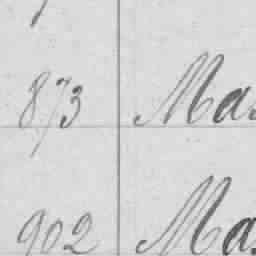 873 Ma
902 Ma